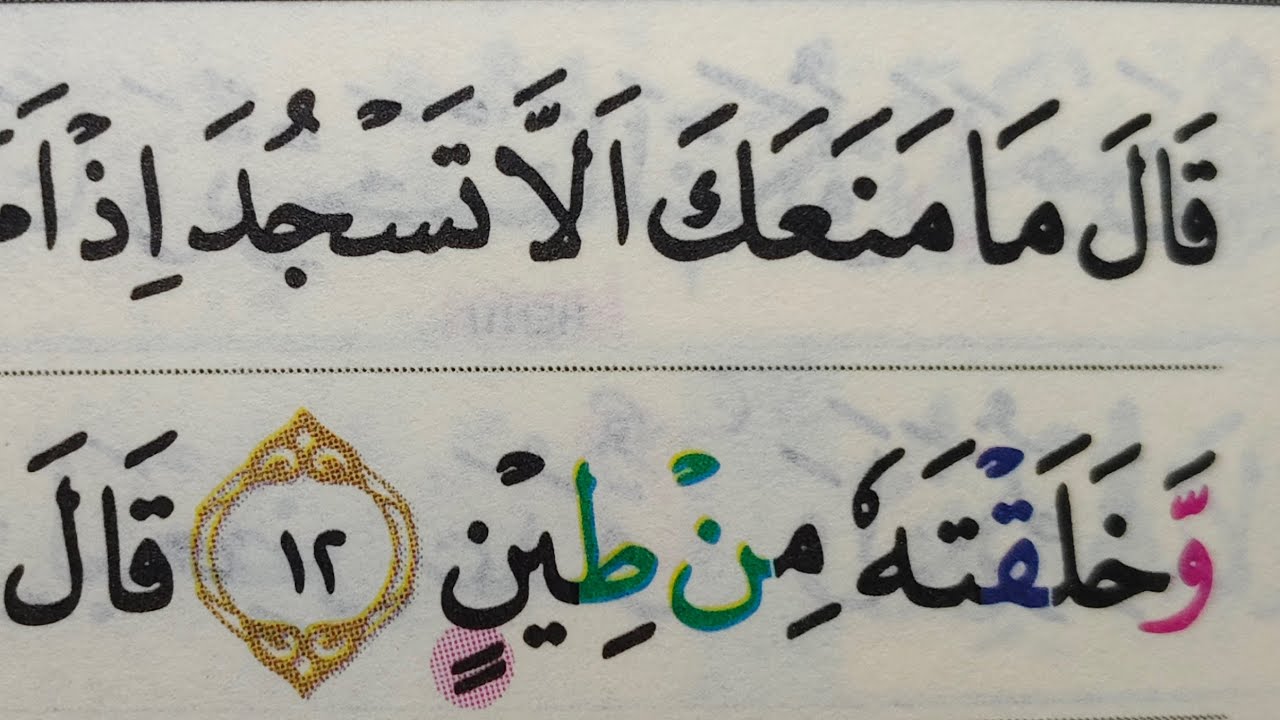 قَالَ مَا مَنَعَكَ اَلَّا تَسْجُدَ اِذْ اَمَ
وَّخَلَقْتَهٗ مِنْ طِيْنٍ ١٢ قَالَ